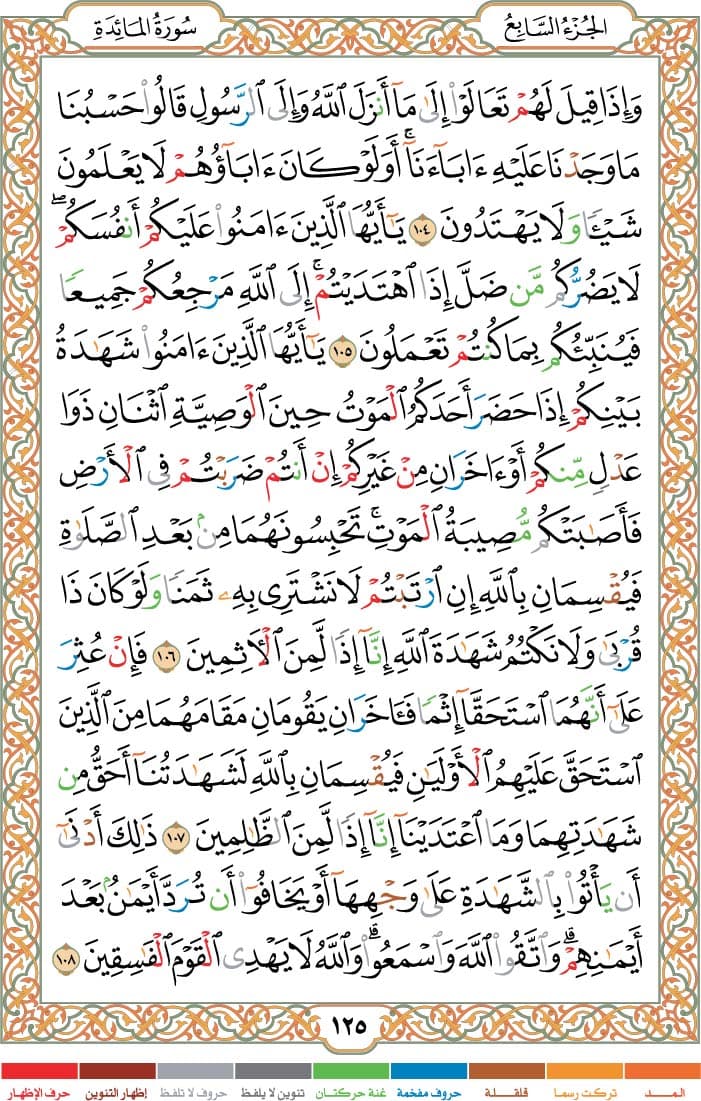 الجُزْءُ السَّابِعُ
سُورَةُ المَائِدَةِ
وَإِذَا قِيلَ لَهُمْ تَعَالَوْا۟ إِلَىٰ مَآ أَنزَلَ ٱللَّهُ وَإِلَى ٱلرَّسُولِ قَالُوا۟ حَسْبُنَا
مَا وَجَدْنَا عَلَيْهِ ءَابَآءَنَآ ۚ أَوَلَوْ كَانَ ءَابَآؤُهُمْ لَا يَعْلَمُونَ
شَيْـًٔا وَلَا يَهْتَدُونَ ١٠٤ يَـٰٓأَيُّهَا ٱلَّذِينَ ءَامَنُوا۟ عَلَيْكُمْ أَنفُسَكُمْ ۖ
لَا يَضُرُّكُم مَّن ضَلَّ إِذَا ٱهْتَدَيْتُمْ ۚ إِلَى ٱللَّهِ مَرْجِعُكُمْ جَمِيعًا
فَيُنَبِّئُكُم بِمَا كُنتُمْ تَعْمَلُونَ ١٠٥ يَـٰٓأَيُّهَا ٱلَّذِينَ ءَامَنُوا۟ شَهَـٰدَةُ
بَيْنِكُمْ إِذَا حَضَرَ أَحَدَكُمُ ٱلْمَوْتُ حِينَ ٱلْوَصِيَّةِ ٱثْنَانِ ذَوَا
عَدْلٍ مِّنكُمْ أَوْ ءَاخَرَانِ مِنْ غَيْرِكُمْ إِنْ أَنتُمْ ضَرَبْتُمْ فِى ٱلْأَرْضِ
فَأَصَـٰبَتْكُم مُّصِيبَةُ ٱلْمَوْتِ ۚ تَحْبِسُونَهُمَا مِنۢ بَعْدِ ٱلصَّلَوٰةِ
فَيُقْسِمَانِ بِٱللَّهِ إِنِ ٱرْتَبْتُمْ لَا نَشْتَرِى بِهِۦ ثَمَنًا وَلَوْ كَانَ ذَا
قُرْبَىٰ ۙ وَلَا نَكْتُمُ شَهَـٰدَةَ ٱللَّهِ إِنَّآ إِذًا لَّمِنَ ٱلْـَٔاثِمِينَ ١٠٦ فَإِنْ عُثِرَ
عَلَىٰٓ أَنَّهُمَا ٱسْتَحَقَّآ إِثْمًا فَـَٔاخَرَانِ يَقُومَانِ مَقَامَهُمَا مِنَ ٱلَّذِينَ
ٱسْتَحَقَّ عَلَيْهِمُ ٱلْأَوْلَيَـٰنِ فَيُقْسِمَانِ بِٱللَّهِ لَشَهَـٰدَتُنَآ أَحَقُّ مِن
شَهَـٰدَتِهِمَا وَمَا ٱعْتَدَيْنَآ إِنَّآ إِذًا لَّمِنَ ٱلظَّـٰلِمِينَ ١٠٧ ذَٰلِكَ أَدْنَىٰٓ
أَن يَأْتُوا۟ بِٱلشَّهَـٰدَةِ عَلَىٰ وَجْهِهَآ أَوْ يَخَافُوٓا۟ أَن تُرَدَّ أَيْمَـٰنٌۢ بَعْدَ
أَيْمَـٰنِهِمْ ۗ وَٱتَّقُوا۟ ٱللَّهَ وَٱسْمَعُوا۟ ۗ وَٱللَّهُ لَا يَهْدِى ٱلْقَوْمَ ٱلْفَـٰسِقِينَ ١٠٨
١٢٥
المـــد
تركت رسما
قلقـــلة
حروف مفخمة
غنة حركتان
تنوين لا يلفظ
حروف لا تلفظ
إظهار التنوين
حرف الإظهار